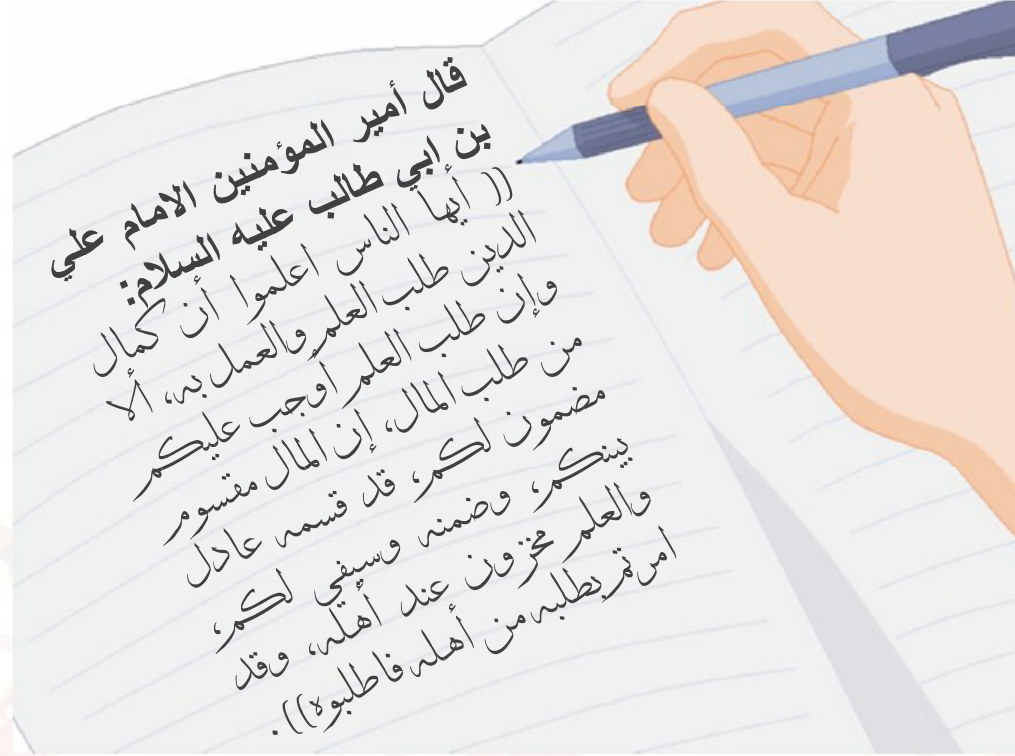 قال أمير المؤمنين الامام علي
بن ابي طالب عليه السلام:
(( أيها الناس اعلموا أن كمال
الدين طلب العلم والعمل به، ألا
وإن طلب العلم أوجب عليكم
من طلب المال، إن المال مقسوم
مضمون لكم، قد قسمه عادل
بينكم، وضمنه وسيفي لكم،
والعلم مخزون عند أهله، وقد
امرتم بطلبه من أهله فاطلبوه)).